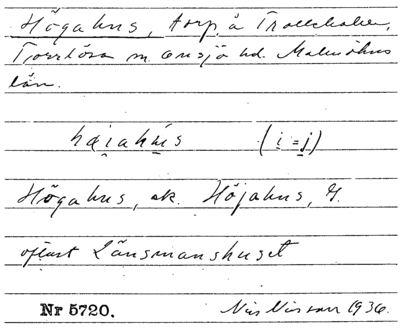 Högahus, torp å Trollebole,
Torrlösa m. Onsjö hd. Malmöhus
län.
hǫi̯ahu̱s (i̱=j)
Högahus, ok. Höjahus, y.
oftast Länsmanshuset
Nr 5720. Nils Nilsson 1936.